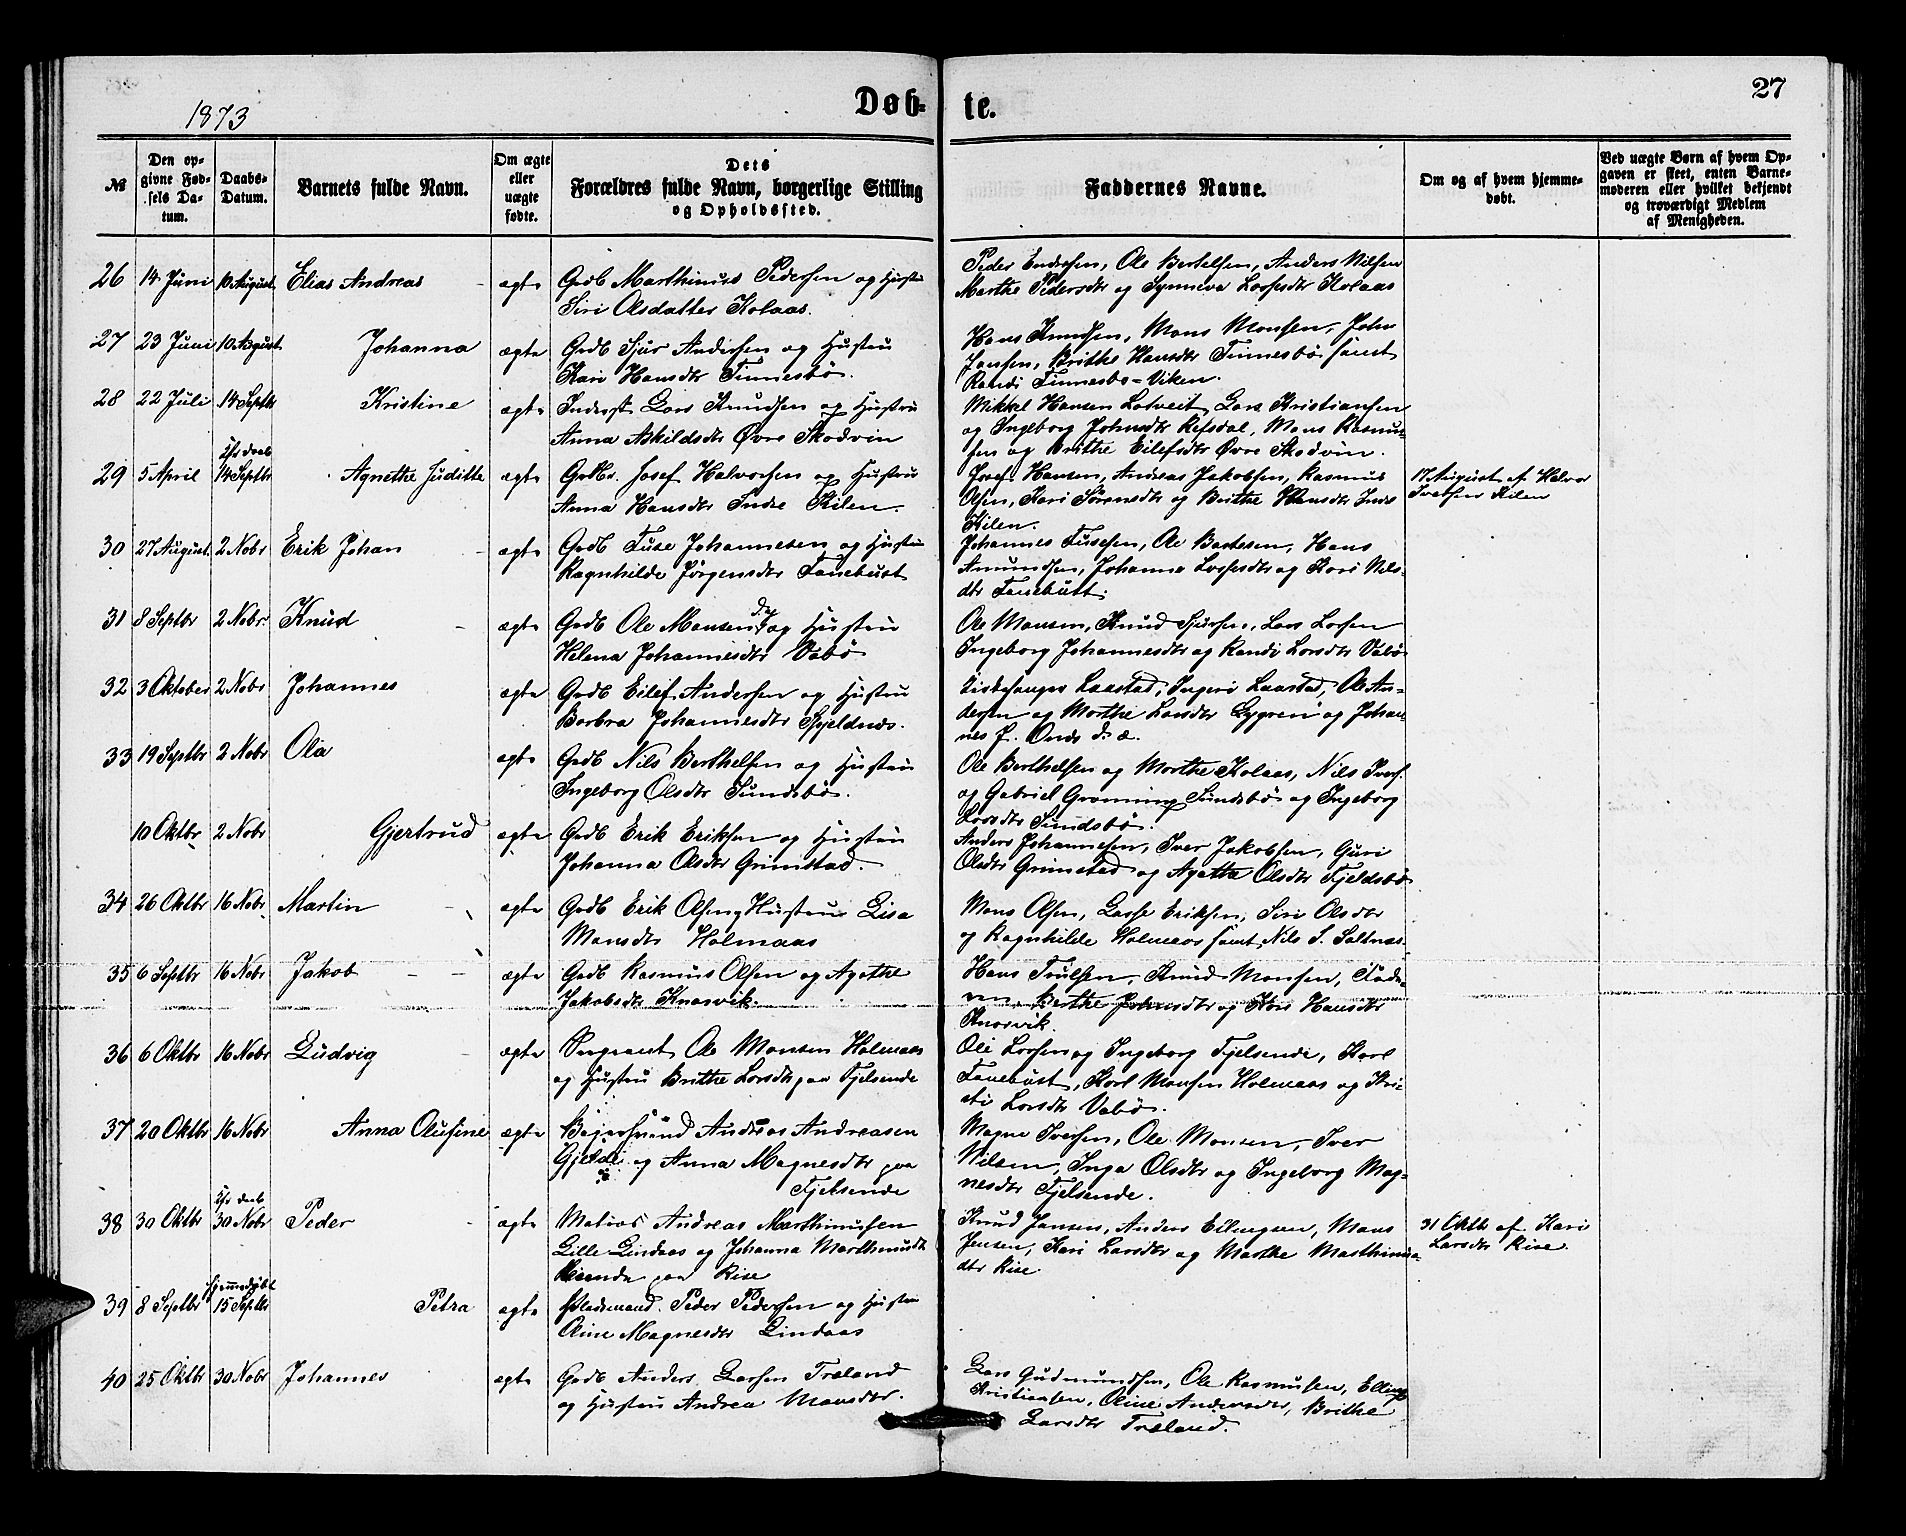 1873
Døb-
te.
27
№
Den op-
givne Fød-
sels Da-
tum.
Daabs-
Datum.
Barnets fulde Navn.
Om ægte
eller
uægte
fødte.
Dets
Forældres fulde Navn, borgerlige Stilling
og Opholdssted.
Faddernes Navne.
Om og af hvem hjemme-
døbt.
Ved uægte Børn af hvem Op-
gaven er skeet, enten Barne-
moderen eller hvilket bekjendt
og troværdigt Medlem
af Menigheden.
26 14 Juni 10 August Elias Andreas - ægte Grdb Marthinus Pedersen og Hustru
Siri Olsdatter Kolaas.
Peder Endresen, Ole Bertelsen, Anders Nilsen
Marthe Pedersdtr og Synneva Lassesdtr Kolaas
27 23 Juni 10 August Johanna ægte Grdb Sjur Andersen og Hustru
Kari Hansdtr Finnesbö.
Hans Knudsen, Mons Monsen, John
Jansen, Brithe Hansdtr Finnesbö samt
Randi Finnesbö-Viken.
28 22 Juli 14 Septbr Kristine ægte Inderst Lars Knudsen og Hustru
Anna Askildsdtr Øvre Skodvin
Mikkel Hansen Lotveit, Lars Kristiansen
og Ingeborg Johnsdtr Refsdal, Mons Rasmus-
sen og Brithe Eilefsdtr Øvre Skodvin.
29 5 April 14 Septbr Agnethe Juditte ægte Grdbr. Josef Halvorsen og Hustru
Anna Hansdtr Indre Kilen.
Josef Hansen, Andreas Jakobsen, Rasmus
Olsen, Kari Sörensdtr og Brithe Hansdtr Indre
Kilen.
17 August af Halvor
Iversen Kilen
30 27 August. 2 Nobr Erik Johan - ægte Grdb Tuse Johannesen og Hustru
Ragnhilde Jörgensdtr Fanebust
Johannes Tusesen, Ole Bartesen, Hans
Amundsen, Johanna Lassesdtr og Kari Nils-
dtr Fanebust.
31 8 Septbr 2 Nobr. Knud - ægte Grdb Ole Monsen d.y. og Hustru
Helena Johannesdtr Vabö
Ole Monsen, Knud Sjursen, Lars Larsen
Ingeborg Johannesdtr og Randi Larsdtr Vabö
32 3 Oktober 2 Nobr Johannes ægte Grdb Eilef Andersen og Hustru
Barbra Johannesdtr Spjeldnæs.
Kirkesanger Laastad, Ingeri Laastad, Ole An-
dersen og Marthe Larsdtr Lygren og Johan-
33 19 Septbr 2 Nobr Ola ægte Grdb Nils Berthelsen og Hustru
Ingeborg Olsdtr Sundsbö.
Ole Berthelsen og Marthe Kolaas, Nils Ivers.
og Gabriel Gronning Sundsbö og Ingeborg
Larsdtr Sundsbö.
10 Oktbr 2 Nobr Gjertrud ægte Grdb Erik Eriksen og Hustru
Johanna Olsdtr Grimstad.
Anders Johannesen, Iver Jakobsen, Guri
Olsdtr Grimstad og Agathe Olsdtr Fjeldsbö
34 26 Oktbr 16 Nobr Martin - ægte Grdb Erik Olsen og Hustru Lisa
Monsdtr Holmaas
Mons Olsen, Lasse Eriksen, Siri Olsdtr
og Ragnhilde Holmaas samt Nils S. Saltnæs.
35 6 Septbr 16 Nobr Jakob - - ægte Grdb Rasmus Olsen og Agathe
Jakobsdtr Knarvik.
Hans Trulsen, Knud Monsen, Fade-
ren, Berthe Johnsdtr og Kari Hansdtr
Knarvik.
36 6 Oktbr 16 Nobr Ludvig - ægte Sergeant Ole Monsen Holmaas
og Hustru Brithe Larsdtr paa Fjelsende
Ole Larsen og Ingeborg Fjelsende, Karl
Fanebust, Karl Monsen Holmaas og Kri-
sti Larsdtr Vabö.
37 20 Oktbr 16 Nobr Anna Olufine ægte Andreas Andreasen
og Anna Magnesdtr paa
Fjelsende
Magne Iversen, Ole Monsen, Iver
Nilsen, Inga Olsdtr og Ingeborg Mag-
nesdtr Fjelsende.
38 30 Oktbr 30 Nobr Peder - ægte Matias Andreas Marthinussen
Lille Lindaas og Johanna Marthinusdtr
paa Rise
Knud Jansen, Anders Ellingsen, Mons
Jensen, Kari Larsdtr og Marthe Marthinus-
dtr Rise.
31 Oktb af Kari
Larsdtr Rise.
39 8 Septbr hjemmedöbt
15 Septbr Petra ægte Pladsmand Peder Pedersen og Hustru
Oline Magnesdtr Lindaas
40 25 Oktbr 30 Nobr Johannes - ægte Grdb Anders Larsen Træland
og Hustru Andrea Monsdtr.
Lars Gudmundsen, Ole Rasmussen, Elling
Kristiansen, Oline Andersdtr, Brithe
Larsdtr Træland.